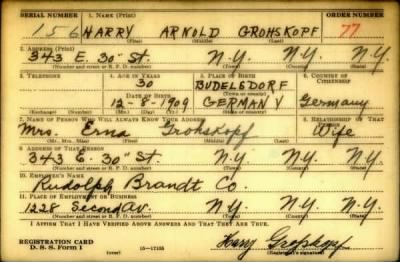 SERIAL NUMBER 1. NAME (Print) ORDER NUMBER
156 HARRY ARNOLD GROHSKOPF 77
(First) (Middle) (Last)
2. ADDRESS (Print)
343 E. 30th ST. N.Y. N.Y. N.Y.
(Number and street or R. F. D. number) (Town) (County) (State)
3. TELEPHONE 4. AGE IN YEARS 5. PLACE OF BIRTH 6. COUNTRY OF CITIZENSHIP
30 BUDELSDORF
DATE OF BIRTH (Town or county)
12-8-1909 GERMANY Germany
(Exchange) (Number) (Mo.) (Day) (Yr.) (State or country)
7. NAME OF PERSON WHO WILL ALWAYS KNOW YOUR ADDRESS 8. RELATIONSHIP OF THAT PERSON
Mrs. Erna Grohskopf Wife
(Mr., Mrs., Miss) (First) (Middle) (Last)
9. ADDRESS OF THAT PERSON
343 E. 30th St. N.Y. N.Y. N.Y.
(Number and street or R. F. D. number) (Town) (County) (State)
10. EMPLOYER'S NAME
Rudolph Brandt Co.
11. PLACE OF EMPLOYMENT OR BUSINESS
1228 Second Av. N.Y. N.Y. N.Y.
(Number and street or R. F. D. number) (Town) (County) (State)
I AFFIRM THAT I HAVE VERIFIED ABOVE ANSWERS AND THAT THEY ARE TRUE.
REGISTRATION CARD
D. S. S. Form 1 16—17105 Harry Grohskopf
(Registrant's signature)